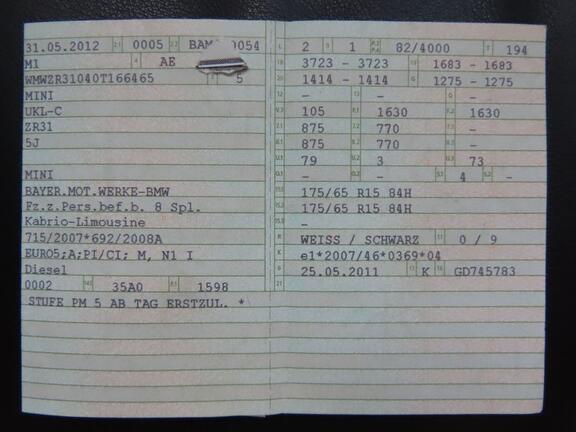 31.05.2012 2.1 0005 2.2 0054
M1 4 AE
WMWZR31040T166465 5
MINI
UKL-C
ZR31
5J
MINI
BAYER.MOT.WERKE-BMW
Fz.z.Pers.bef.b. 8 Spl.
Kabrio-Limousine
715/2007*692/2008A
EURO5;A;PI/CI; M, N1 I
Diesel
0002 35A0 1598
STUFE PM 5 AB TAG ERSTZUL. *
L 2 9 1 P.2 P.4 82/4000 T 194
18 3723 - 3723 19 1683 - 1683
20 1414 - 1414 G 1275 - 1275
12 - 13 - Q -
V.7 105 F.1 1630 F.2 1630
7.1 875 7.2 770 7.3 -
8.1 875 8.2 770 8.3 -
U.1 79 U.2 3 U.3 73
O.1 - O.2 - S.1 4 S.2 -
15.1 175/65 R15 84H
15.2 175/65 R15 84H
15.3 -
R WEISS / SCHWARZ 11 0 / 9
K e1*2007/46*0369*04
6 25.05.2011 17 K 16 GD745783
21